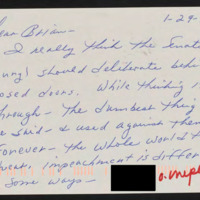 ear Brian— 1-29-
I really think the Senate
ury) should deliberate beh
osed doors. While thinking i
hrough— the dumbest thing
be said— & used against them
orever— the whole world t
Impeachment is differ
some ways—